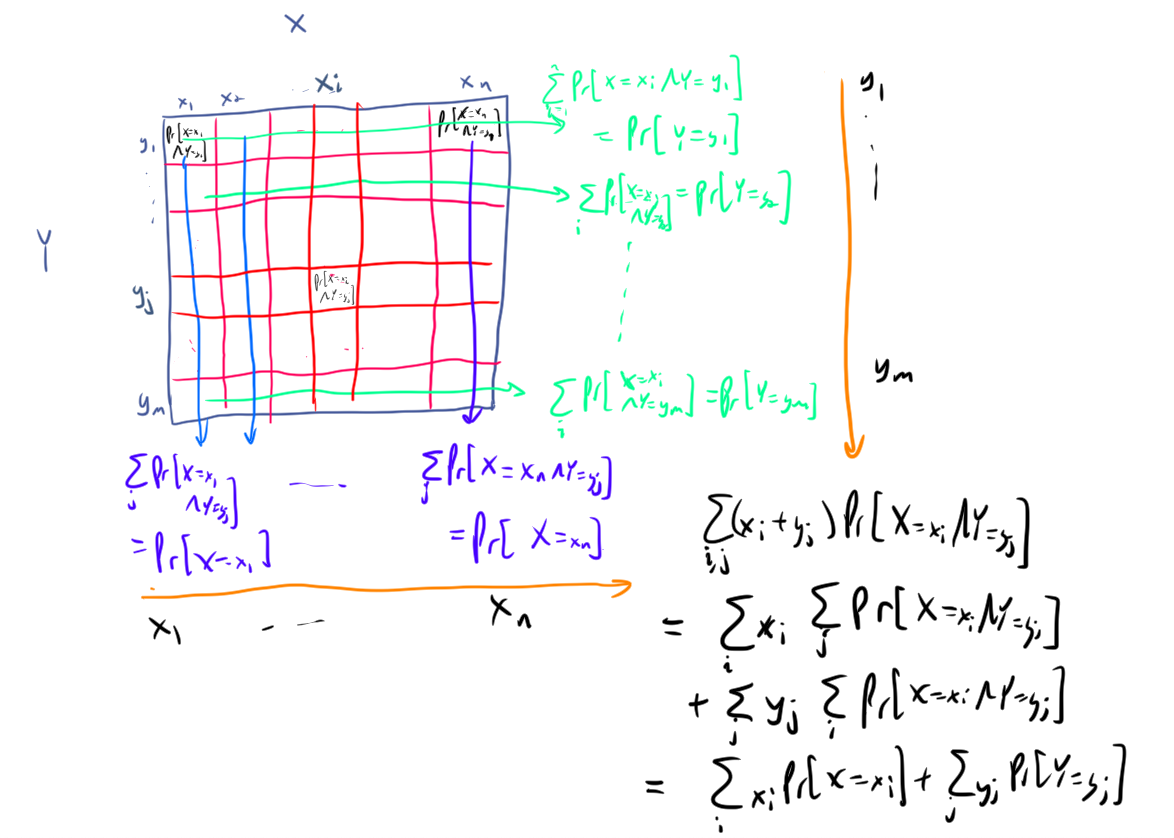 X
x₁ x₂ ... xᵢ xₙ
y₁
Pr[X=x₁
∧Y=y₁]
Pr[X=xₙ
Y
yⱼ
Pr[X=xᵢ
∧Y=yⱼ]
yₘ
Pr[X=xᵢ ∧Y=y₁]
= Pr[Y=y₁]
∧Y=y₂] = Pr[Y=y₂]
∑ᵢ Pr[X=xᵢ
∧Y=yₘ] = Pr[Y=yₘ]
y₁
yₘ
∑ⱼ Pr[X=x₁
∧Y=yⱼ]
= Pr[X=x₁]
∑ⱼ Pr[X=xₙ ∧Y=yⱼ]
= Pr[X=xₙ]
x₁ ... xₙ
∑ᵢ,ⱼ (xᵢ+yⱼ) Pr[X=xᵢ ∧Y=yⱼ]
= ∑ᵢ xᵢ ∑ⱼ Pr[X=xᵢ ∧Y=yⱼ]
+ ∑ⱼ yⱼ ∑ᵢ Pr[X=xᵢ ∧Y=yⱼ]
= ∑ᵢ xᵢ Pr[X=xᵢ] + ∑ⱼ yⱼ Pr[Y=yⱼ]